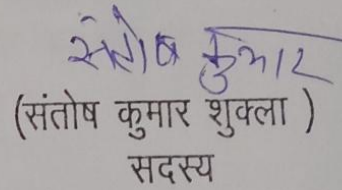 संतोष कुमार
(संतोष कुमार शुक्ला )
सदस्य